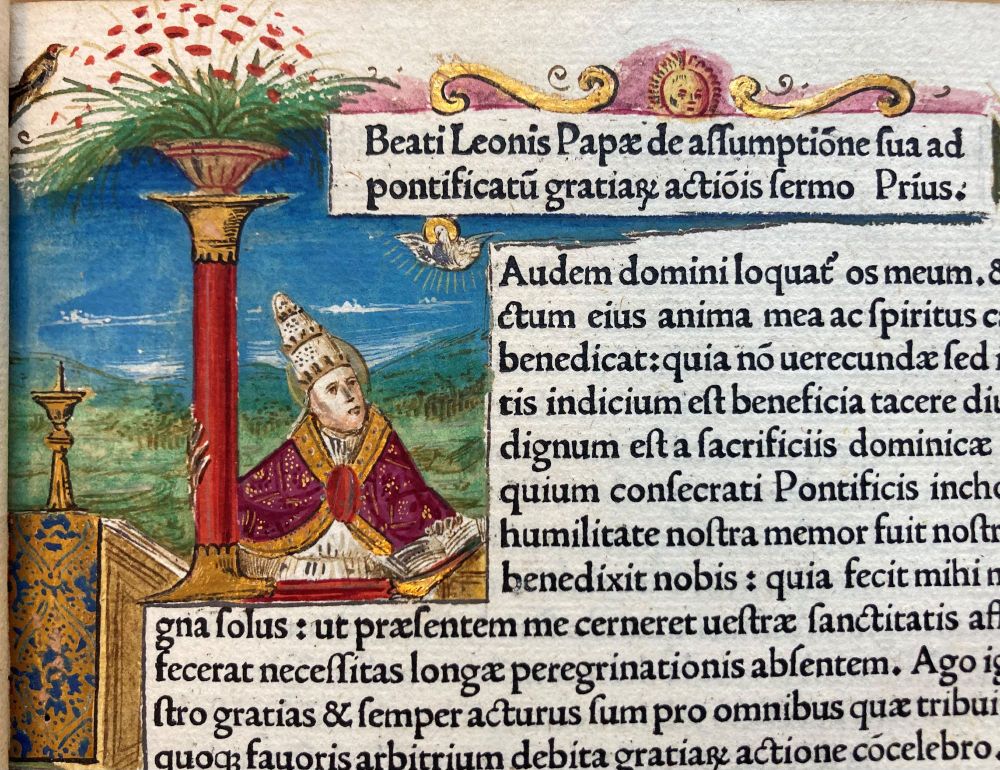 Beati Leonis Papæ de aſſumptiōne ſua ad
pontificatū gratiaꝝ actiōis ſermo Prius.
LAudem domini loquat᷑ os meum. &
ctum eius anima mea ac ſpiritus
benedicat: quia nō uerecundæ ſed
tis indicium eſt beneficia tacere
dignum eſt a ſacrificiis dominicæ
quium conſecrati Pontificis
humilitate noſtra memor fuit
benedixit nobis : quia fecit mihi
gna ſolus : ut præſentem me cerneret ueſtræ ſanctitatis
fecerat neceſſitas longæ peregrinationis abſentem. Ago
ſtro gratias & ſemper acturus ſum pro omnibus quæ
quoqꝫ fauoris arbitrium debita gratiaꝝ actione cōcelebro.